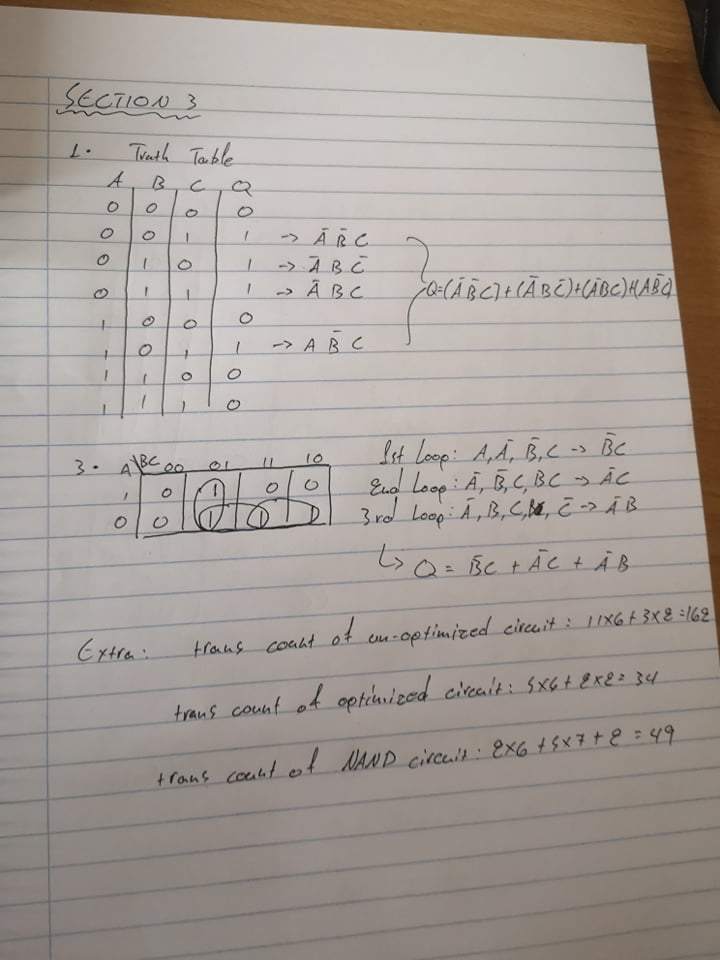 SECTION 3
1. Truth Table
A B C Q
0 0 0 0
0 0 1 1 -> Ā B̄ C
0 1 0 1 -> Ā B C̄
0 1 1 1 -> Ā B C
Q=(Ā B̄ C)+(Ā B C̄)+(ĀBC)+(AB̄C)
1 0 0 0
1 0 1 1 -> A B̄ C
1 1 0 0
1 1 1 0
3. A\BC 00 01 11 10
1 0 1 0 0
0 0 1 1 1
1st Loop: A, Ā, B̄, C -> B̄C
2nd Loop: Ā, B̄, C, BC -> ĀC
3rd Loop: Ā, B, C, C̄ -> ĀB
↳ Q = B̄C + ĀC + ĀB
Extra: trans count of un-optimized circuit: 11x6+3x2=162
trans count of optimized circuit: 5x6+2x2=34
trans count of NAND circuit: 2x6+5x7+2=49